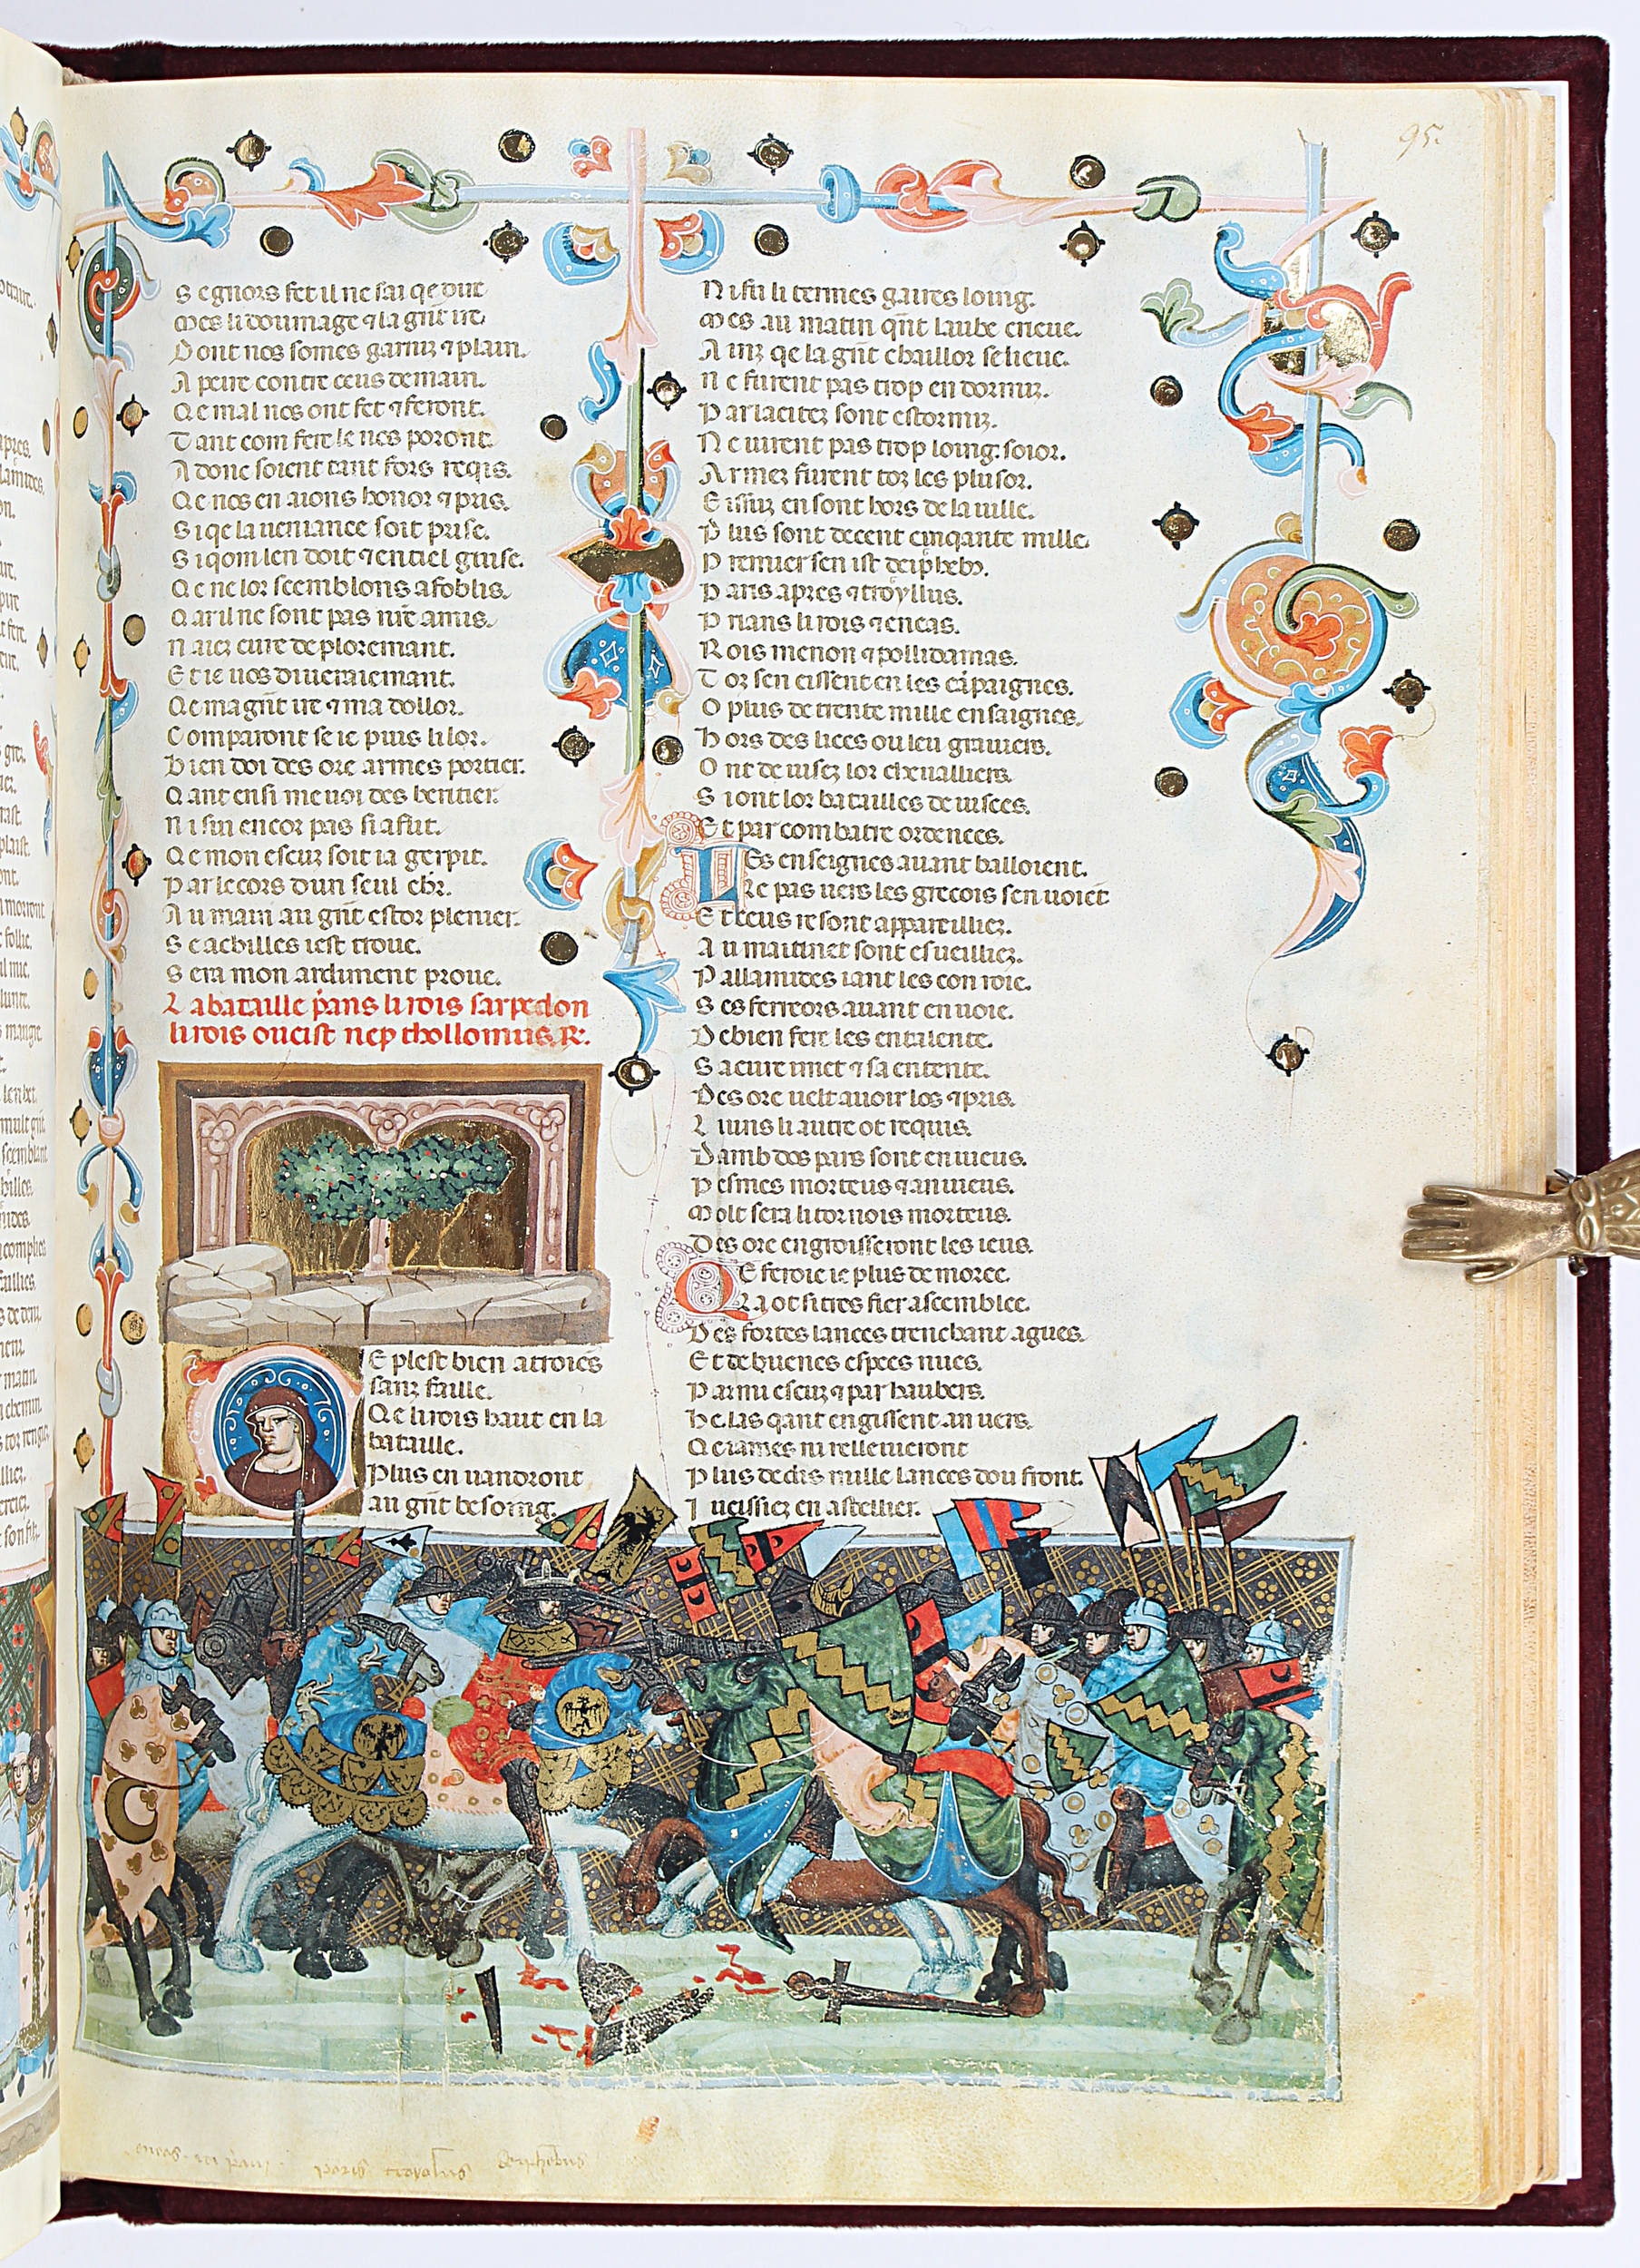 95.
Segnors fet il ne sai qe dire
Mes li doumage ⁊ la grāt ire
Dont nos somes garniz ⁊ plain.
A peire contre ceus demain.
Qe mal nos ont fet ⁊ feront.
Tant com fere le nes poront.
Adonc soient tant fors reqis.
Qe nos en aions honor ⁊ pris.
Si qe la veniance soit prise.
Si qom len doit ⁊ en tiel guise.
Qe ne lor scemblons afoblis.
Qar il ne sont pas nre amis.
Naiez cure de ploremant.
Et ie uos di ueraiemant.
Qe ma grāt ire ⁊ ma dollor.
Comparont se ie puis li lor.
Bien doi des ore armes portier.
Qant ensi me uoi desheritier.
Ni sui encor pas si afut.
Qe mon escuz soit ia gerpit.
Par le cors dun seul chr.
Au main au grāt estor plenier.
Se achilles i est troue.
Sera mon ardiment proue.
La bataille pans li rois sarpedon
li rois oucist nep thollomus. R:
E plest bien atroies
sanz faille.
Qe li rois haut en la
bataille.
Plus en uandront
au grāt besoing.
Ni fu li termes gaires loing.
Mes au matin qnt laube crieue.
Ainz qe la grāt chaillor se lieue.
Ne furent pas trop en dormiz.
Par la citez sont estormiz.
Ne uirent pas trop loing soior.
Armez furent toz les plusor.
Eissuz en sont hors de la uille.
Plus sont de cent cinqante mille.
Premier sen ist deiphebꝯ.
Paris apres ⁊ troyllus.
Prians li rois ⁊ eneas.
Rois menon ⁊ pollidamas.
Toz sen eissent en les cāpaignes.
O plus de trente mille ensaignes.
Hors des lices ou leu grauiers.
Ont deuisez lor cheualliers.
Si ont lor batailles deuisees.
Et par combatre ordenees.
Les enseignes auant balloient.
Le pas uers les grecois sen uoiēt
Et ceus resont appareilliez.
Au maitinet sont esueilliez.
Pallamides iant les conroie.
Ses ferreors auant enuoie.
De bien fere les entalente.
Sa cure i met ⁊ sa entente.
Des ore uelt auoir los ⁊ pris.
Luns li autre ot requis.
Dambdos pars sont enuieus.
Pesmes morteus ⁊ anuieus.
Molt sera li tornois morteus.
Des ore engroisseront les ieus.
Qe feroie ie plus de moree.
Qa ot si tres fier ascemblee.
Des fortes lances trenchant agues.
Et de buenes espees nues.
Parmi escuz ⁊ par haubers.
Helas qant en gissent anuers.
Qe iames ni relleueront
Plus de dis mille lances dou front.
I ueissiez en astellier.
eneas. rei pāmꝰ. paris troyolus deyphebus